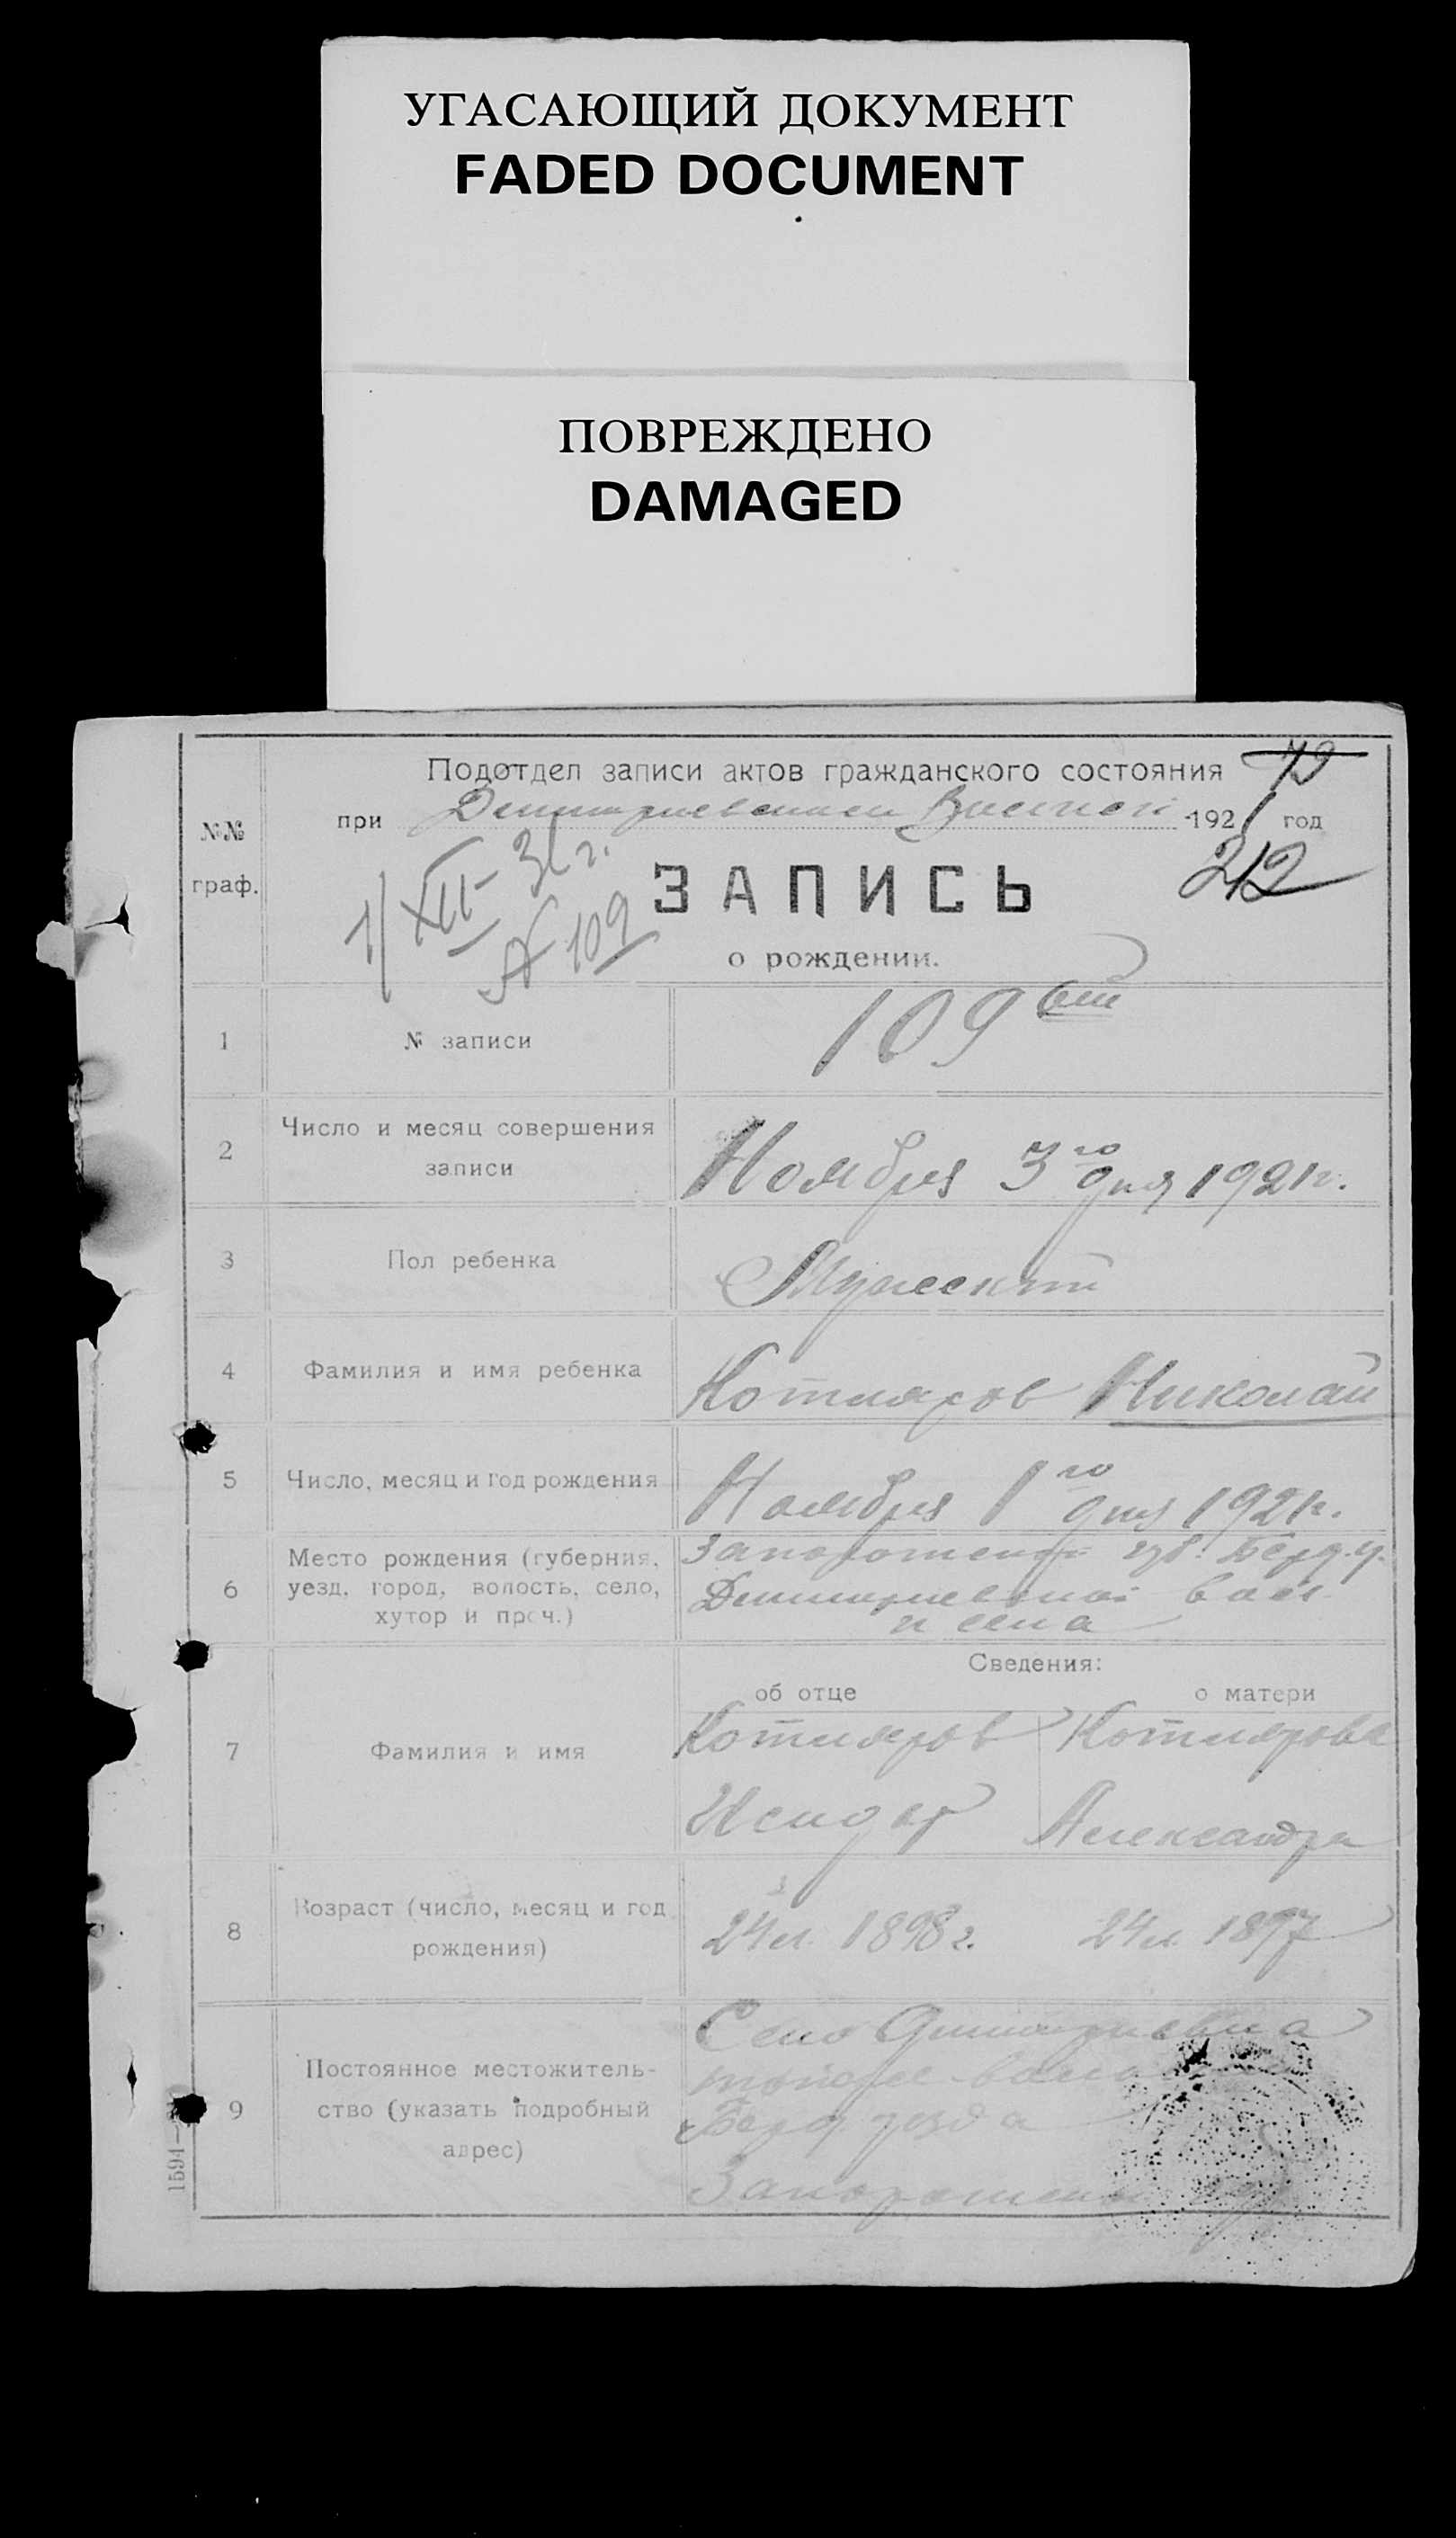 УГАСАЮЩИЙ ДОКУМЕНТ
FADED DOCUMENT
ПОВРЕЖДЕНО
DAMAGED
72
Подотдел записи актов гражданского состояния
при Дмитриевском -1921 год
212
№№
граф.
1/XII-31 г.
№ 109
ЗАПИСЬ
о рождении.
1 № записи 109
2 Число и месяц совершения
записи
Ноября 3го дня 1921г.
3 Пол ребенка Мужеский
4 Фамилия и имя ребенка Котляров Николай
5 Число, месяц и год рождения Ноября 1го дня 1921г.
6 Место рождения (губерния,
уезд, город, волость, село,
хутор и проч.)
Запорожской губ. Берд. у.
Дмитриевской вол
и села
Сведения:
об отце о матери
7 Фамилия и имя
Котляров Котлярова
Исидор Александра
8 Возраст (число, месяц и год
рождения)
24 л. 1898 г. 24 л. 1897
9 Постоянное местожитель-
ство (указать подробный
адрес)
Село Дмитриевка
тойже
Берд уезда
Запорожской
1594